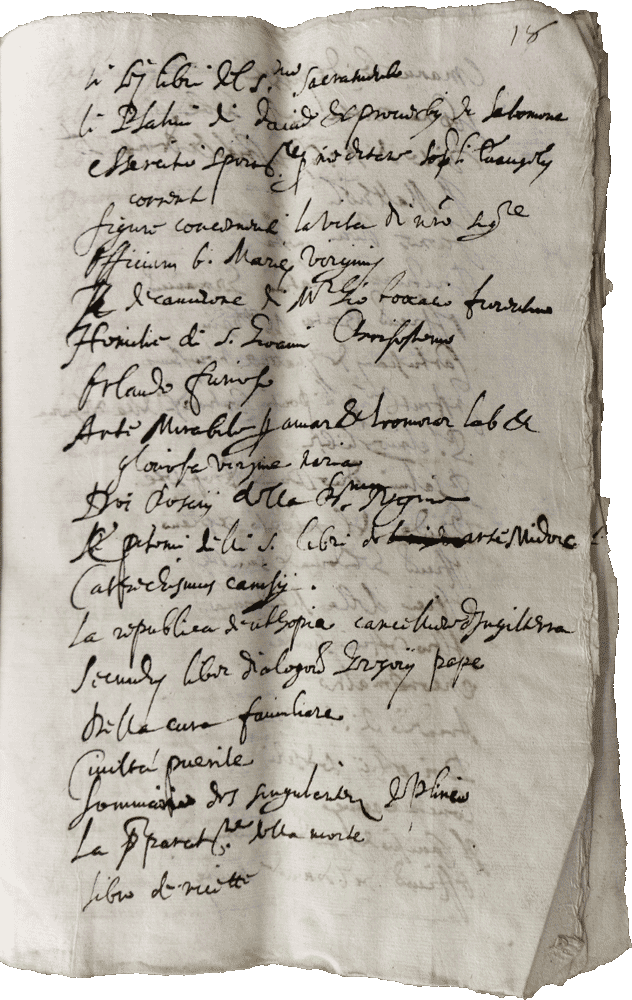 18
li sei libri del s.mo sacramento
li Psalmi di david & proverbij di Salomone
essercitio spiri.le meditare sop. li evangelij
correnti
figure concernenti la vita di nro sigre
Officium b. Marię virginis
Il decamerone di Mr Gio boccacio fiorentino
Homilie di s. Giovani Chrisostomo
Orlando furioso
Arte Mirabile p amar & honorar la b &
gloriosa virgine maria
Doi rosarij della
li libri de arte
Catechismus canisij .
La republica de uthopia cancelliere d'Ingilterra
Secundus liber dialogorum Gregorij pape
Della cura familiare
Civiltà puerile
Sommaire des singularitez de Plinio
La pparat.ne della morte
libro de ricette